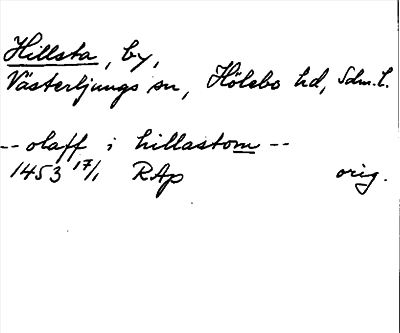 Hillsta, by,
Västerljungs sn, Hölebo hd, Sdm.l.
-- olaff i hillastom --
1453 17/1 RAp orig.